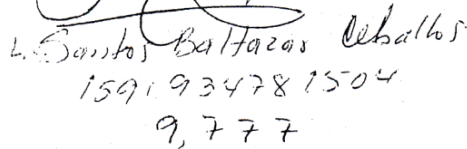 L. Santos Baltazar Ceballos
1591 93478 1504
9,777